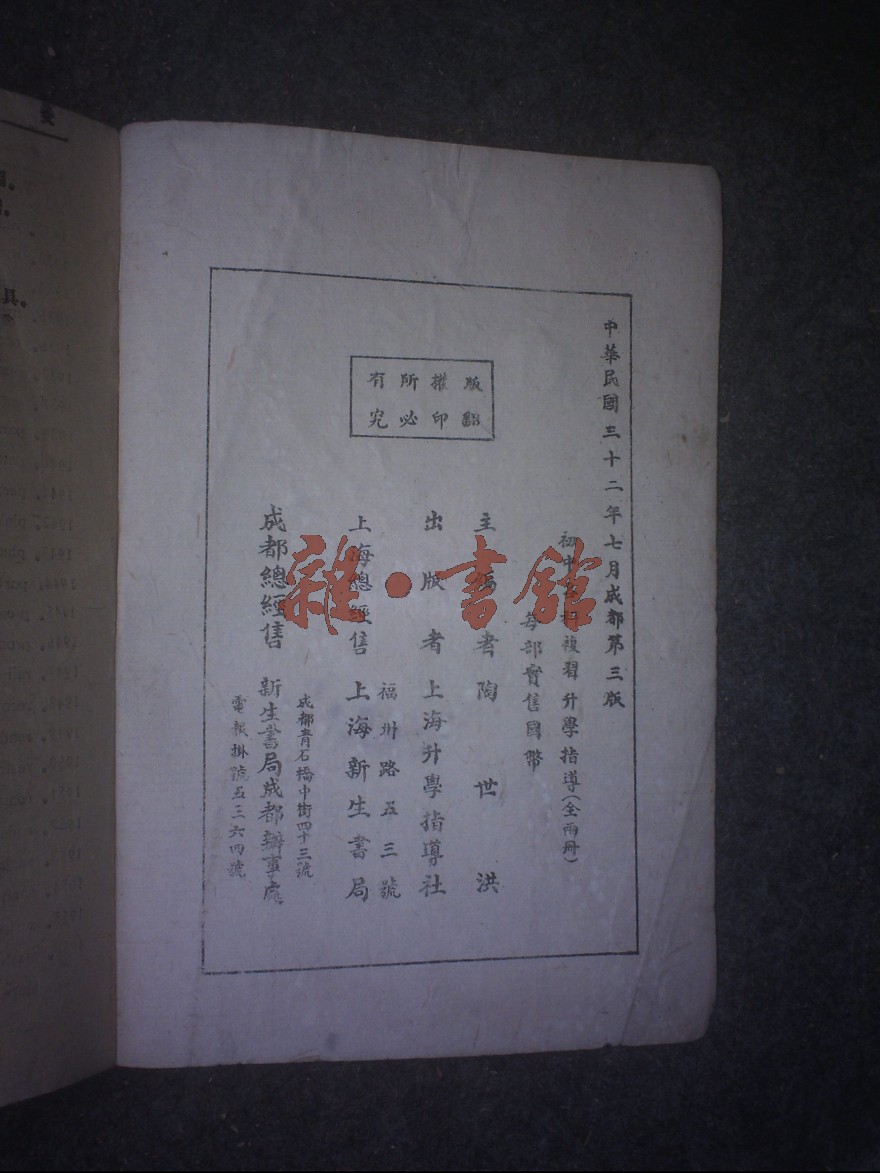 中華民國三十二年七月成都第三版
初中各科複習升學指導（全兩冊）
每部實售國幣
主編者陶世洪
出版者上海升學指導社
福州路五三號
上海總經售上海新生書局
成都青石橋中街四十三號
成都總經售新生書局成都辦事處
電報掛號五三六四號
版權所有
翻印必究
雜·書館